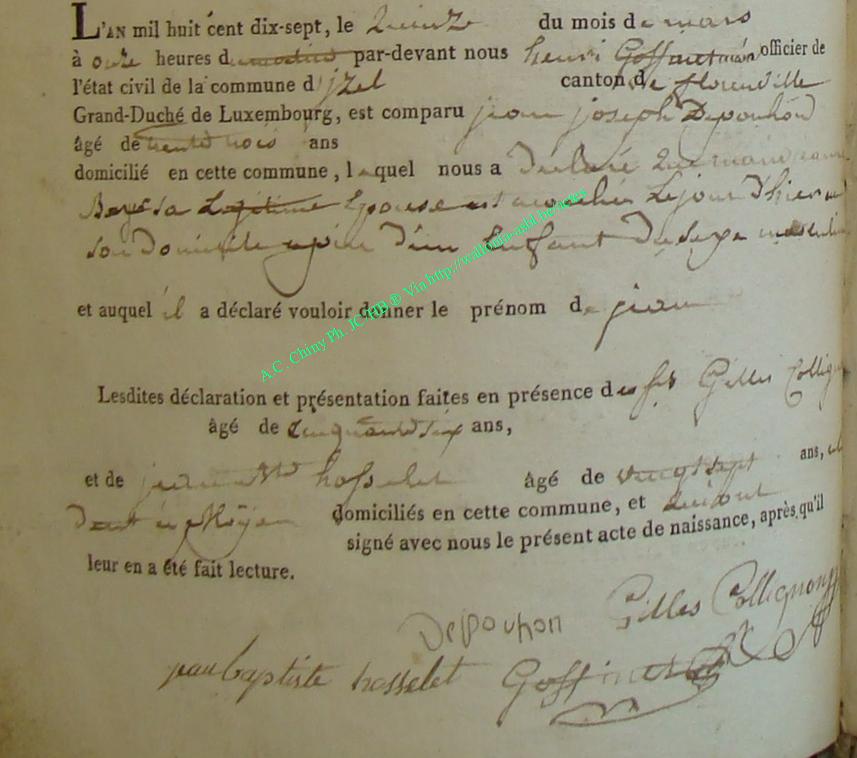 L'AN mil huit cent dix-sept, le Quinze du mois de mars
à onze heures du matin par-devant nous henri Goffinet officier de
l'état civil de la commune d'jzel canton de florenville
Grand-Duché de Luxembourg, est comparu jean joseph Depouhon
âgé de trente trois ans
domicilié en cette commune, lequel nous a déclaré Que
sa Légitime Epouse est accouchée Le jour D'hier
son Domicile D'un Enfant Du sexe masculin
et auquel il a déclaré vouloir donner le prénom de jean
Lesdites déclaration et présentation faites en présence des Gilles Collignon
âgé de cinquante six ans,
et de hosselet âgé de vingt sept ans,
domiciliés en cette commune, et Qui ont
signé avec nous le présent acte de naissance, après qu'il
leur en a été fait lecture.
Depouhon Gilles Collignon
jean baptiste hosselet Goffinet
A.C. Chiny Ph. JC-HB ® Via http://wallonia-asbl.be/actes